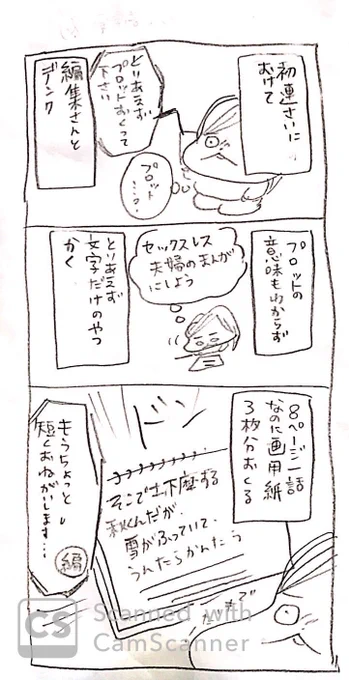 初連さいに
むけて
とりあえず
プロットおくって
下さい
編集さんと
デンワ
プロット
…?
プロットの
意味もわからず
セックスレス
夫婦のまんが
にしよう
とりあえず
文字だけのやつ
かく
8ページ一話
なのに画用紙
3枚分おくる
ドン
そこで土下座する
んだが、
雪がふっていて、
うんたらかんたら
もうちょっと
短くおねがいします…
編
CS Scanned with
CamScanner